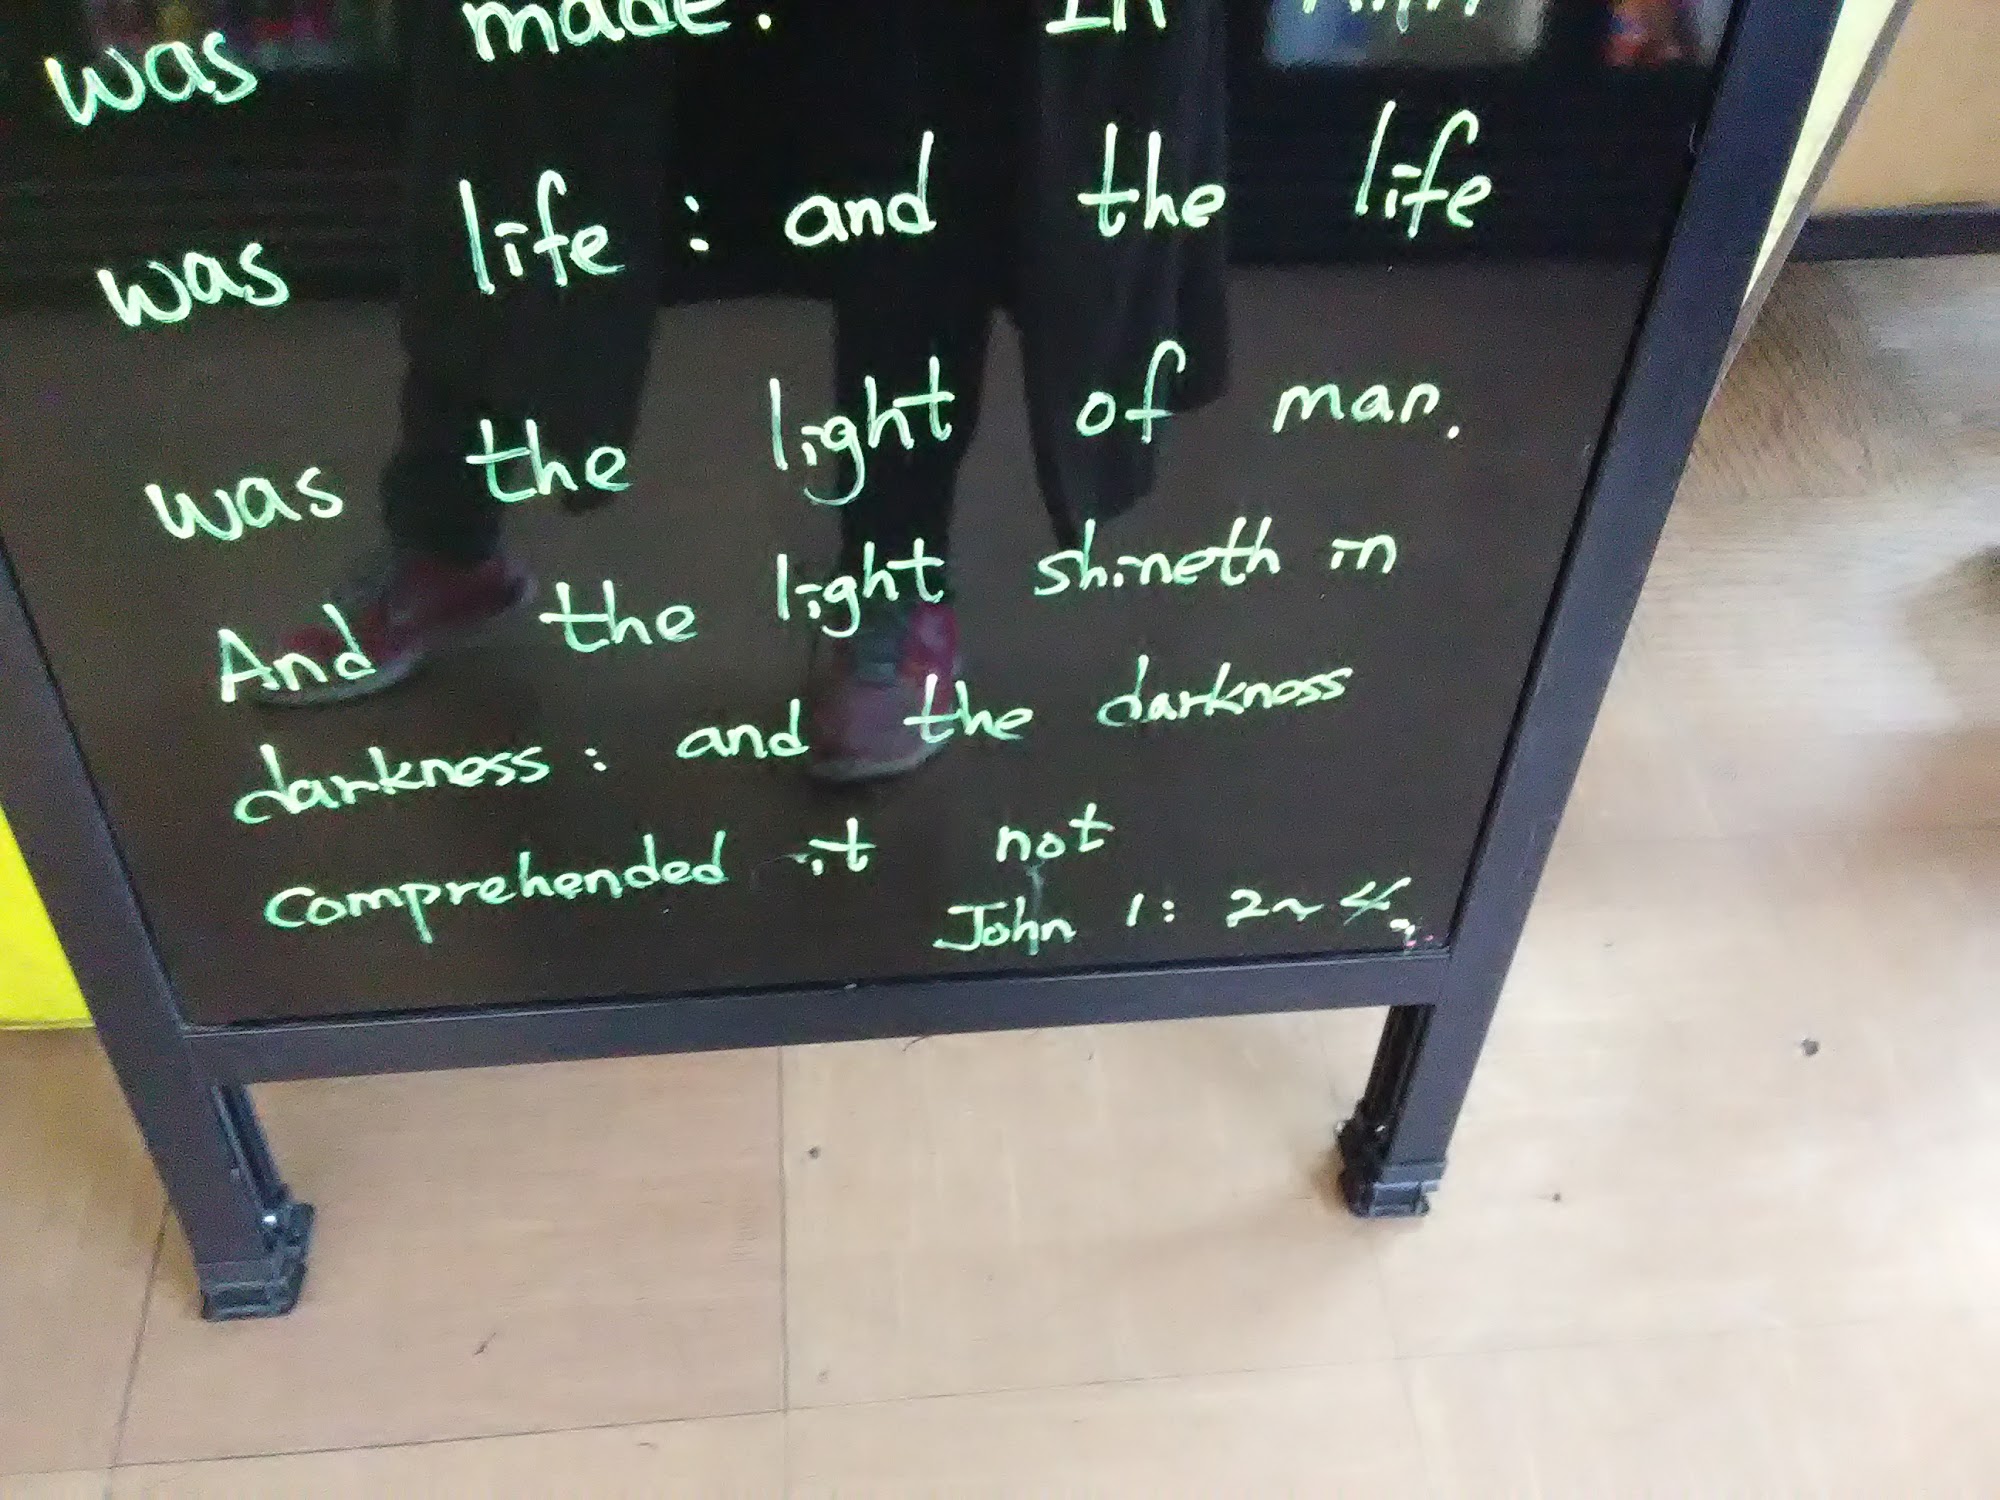 was made. In him
was life : and the life
was the light of man.
And the light shineth in
darkness : and the darkness
comprehended it not
John 1 : 2~4.